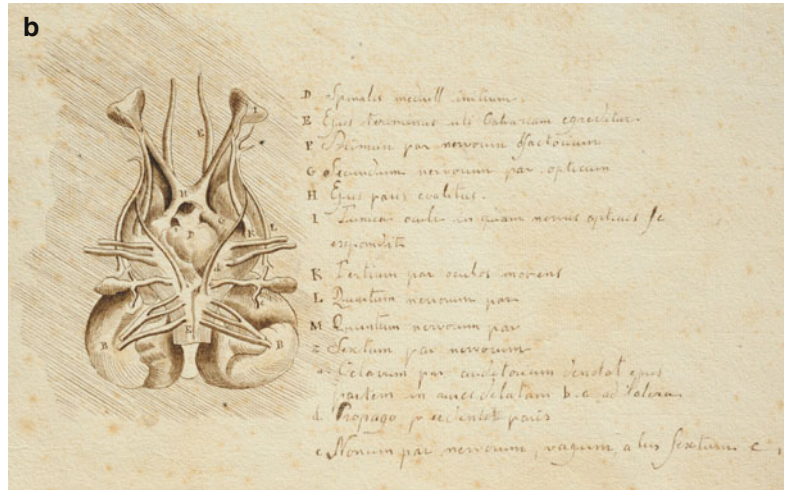 b
D Spinalis medull initium.
E Ejus terminus ubi Calvariam egreditur.
F Primum par nervorum olfactorium
G Secundum nervorum par opticum
H Ejus paris coalitus.
I Tunica oculi in quam nervus opticus se
K Tertium par oculos movens
L Quartum nervorum par
M Quintum nervorum par
Sextum par nervorum
par auditorium denotat ejus
partem in aures delatam b. c ad latera
d Propago paris
e Nonum par nervorum, vagum, sextum
I
E
H
G
F
K
L
d
E
B
B